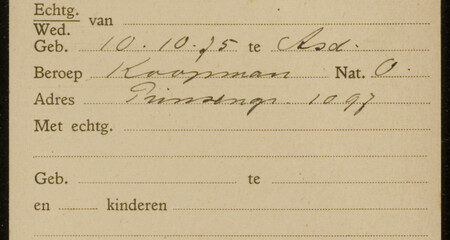 Echtg.
Wed. van
Geb. 10.10.75 te Asd.
Beroep Koopman Nat. O.
Adres Prinsengr. 1097
Met echtg.
Geb. te
en kinderen